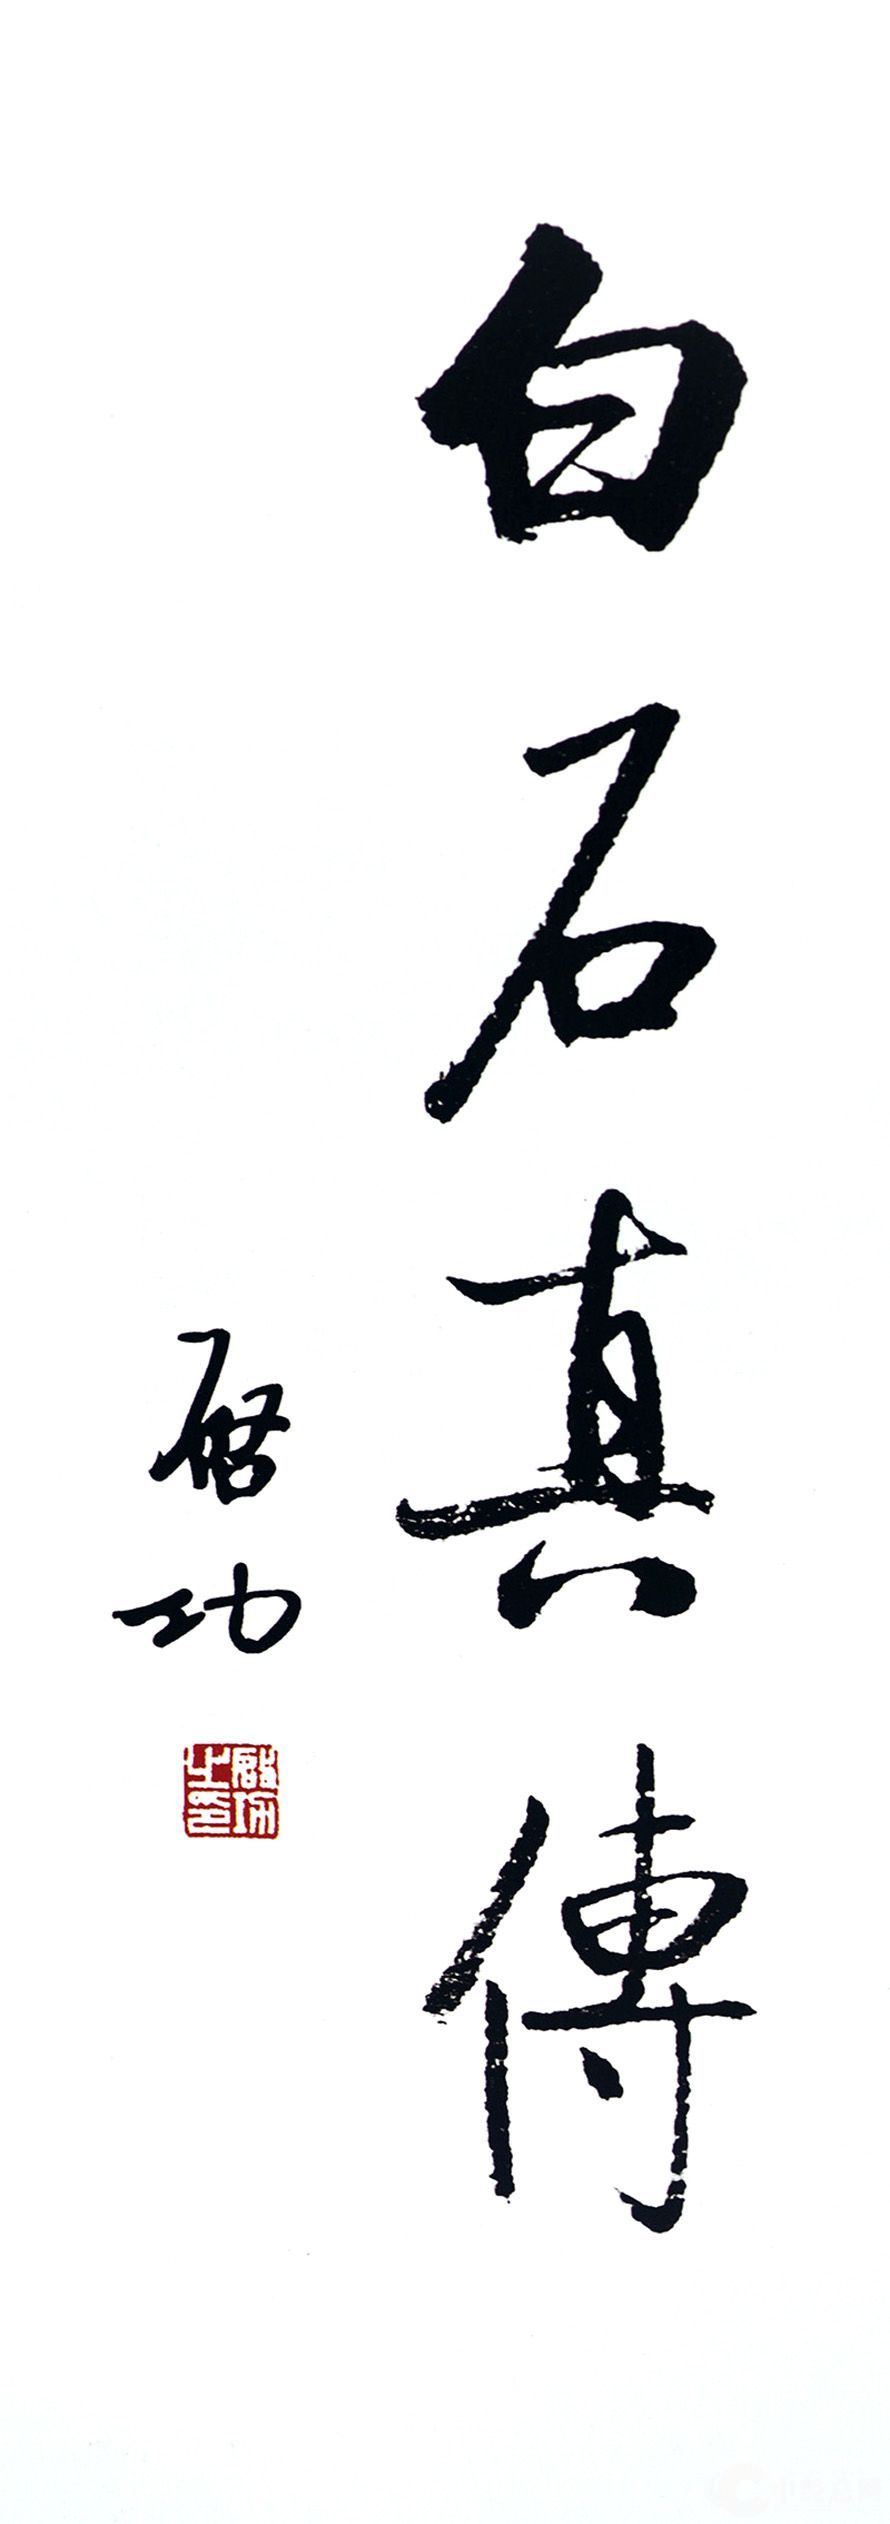 白石真傳
啓功
啟功
之印